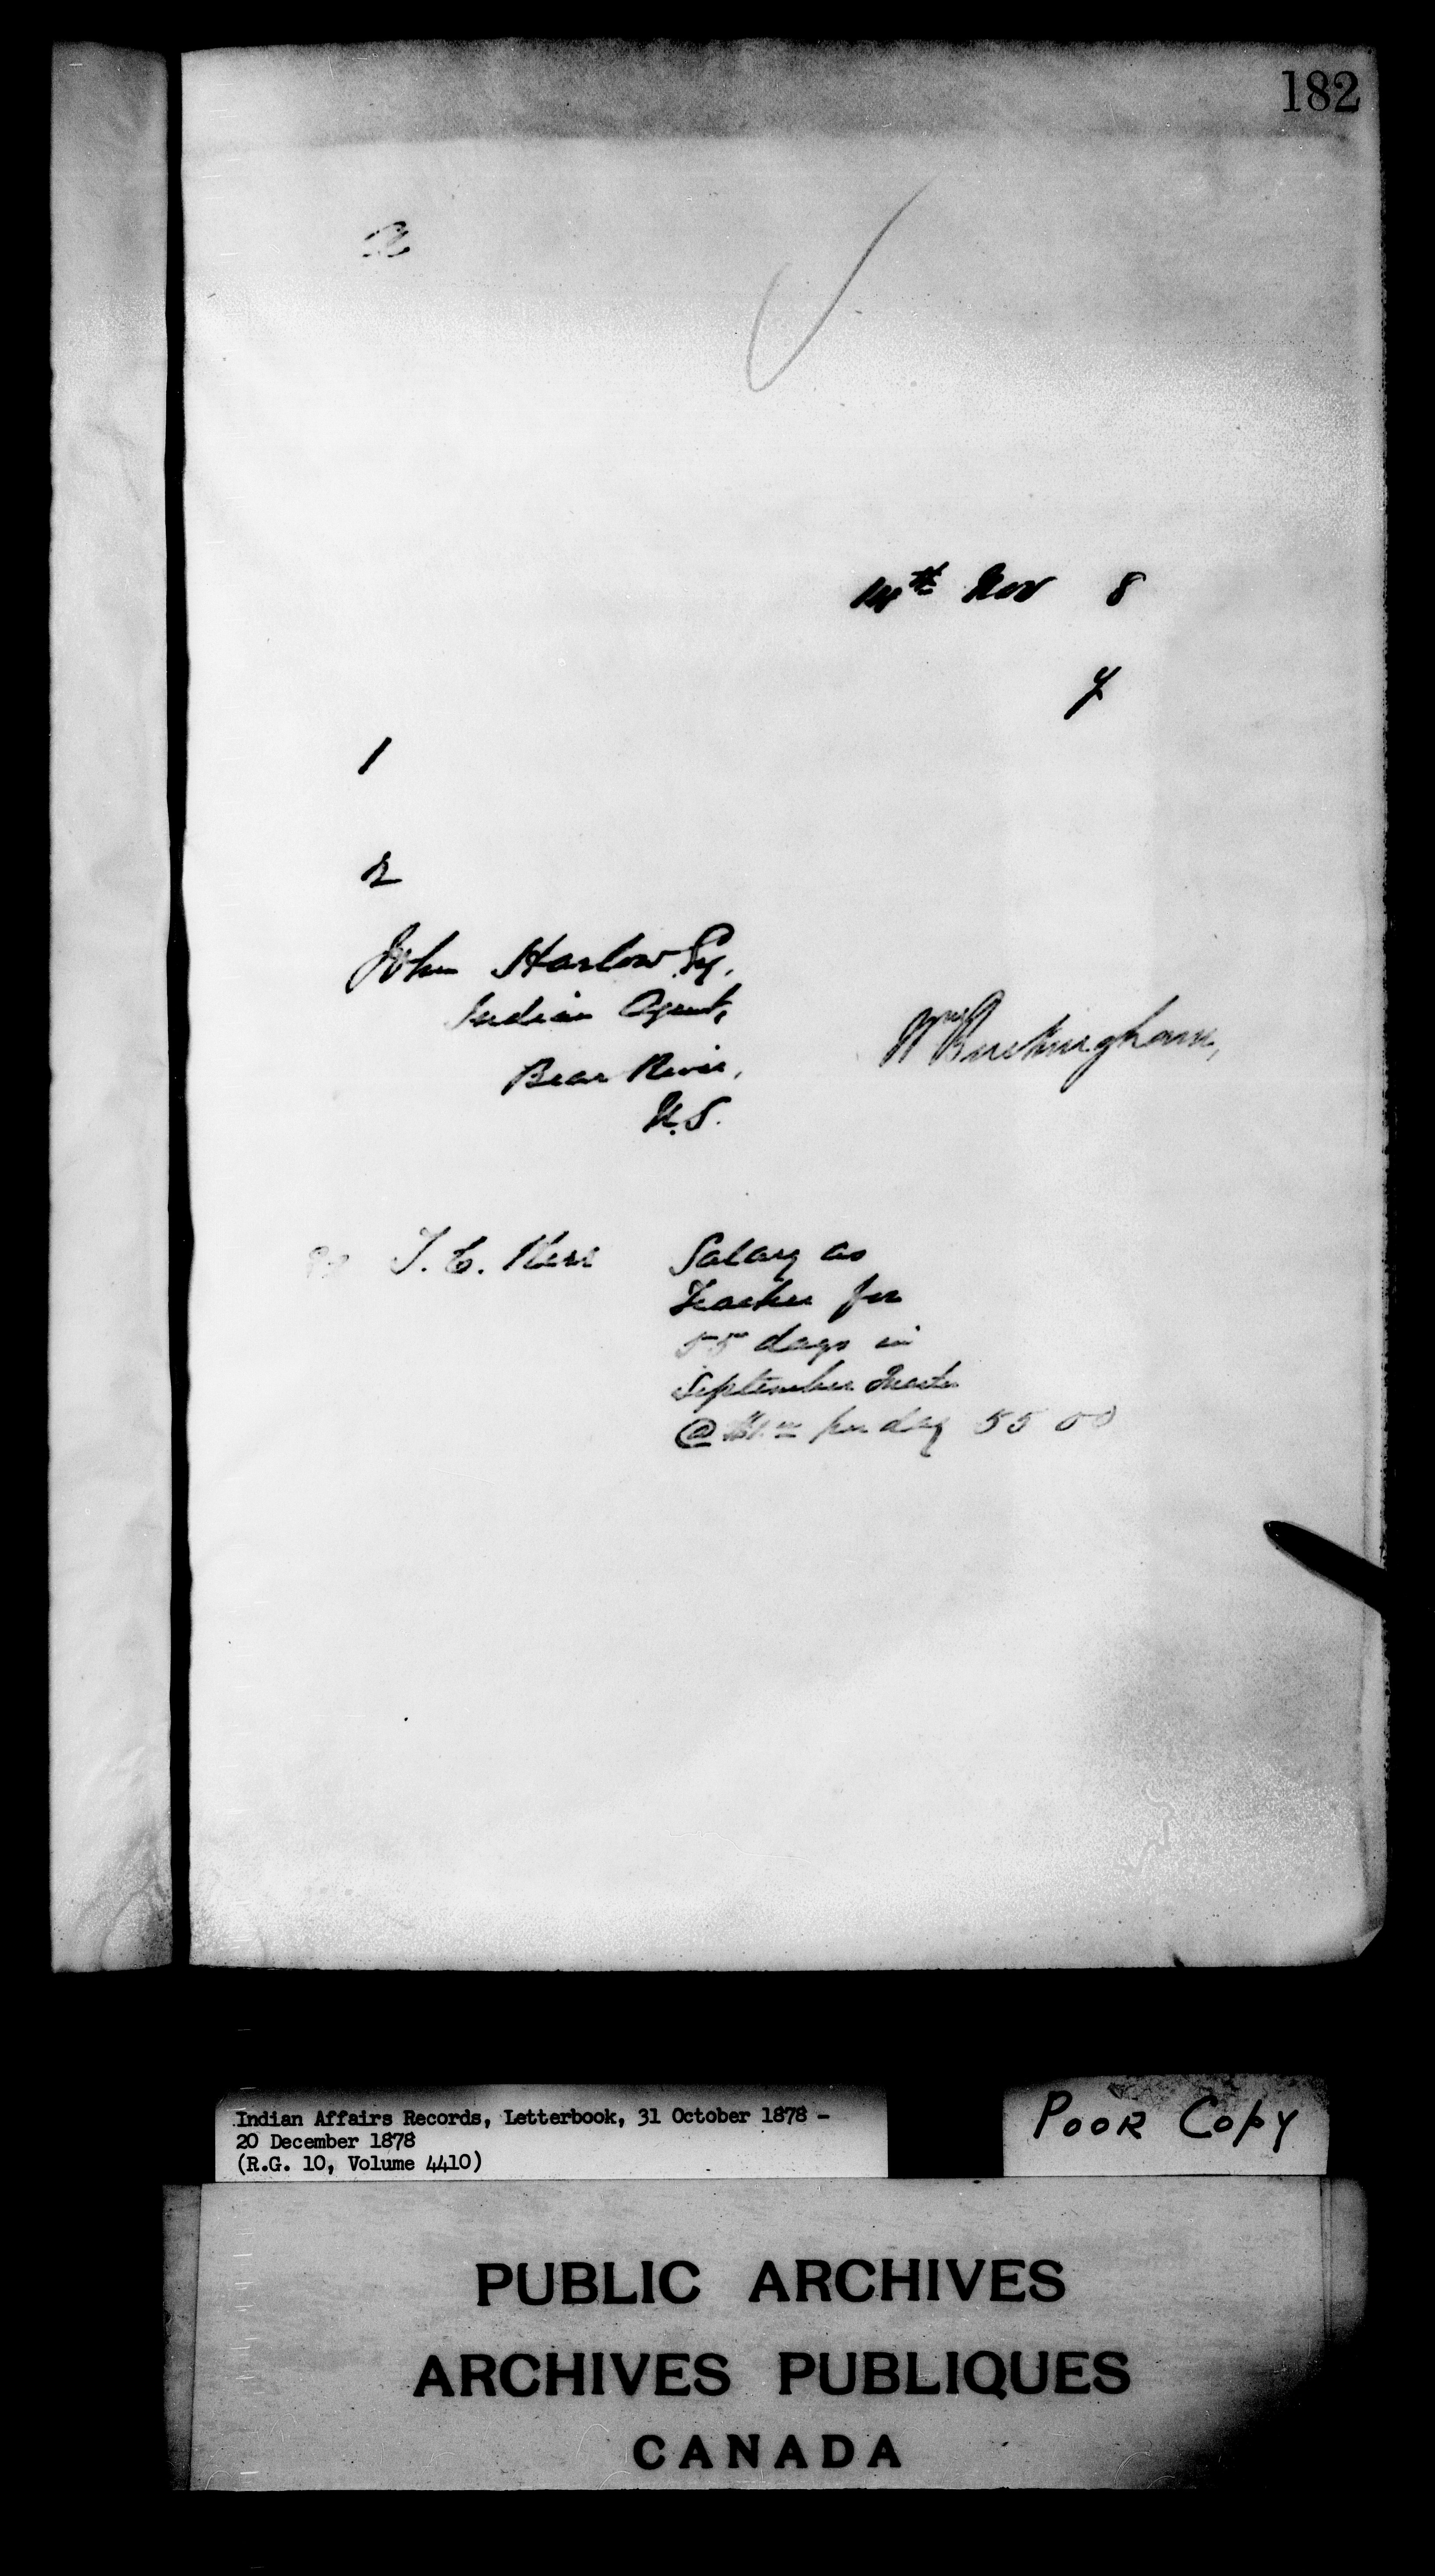 182
14th Nov 8
y
1
2
John Harlow Esq.
Indian Agent,
Bear River,
N.S.
Wm Buckingham,
J. C. Kerr Salary as
Teacher for
55 days in
September Quarter
@ $1.00 per day 55 00
Indian Affairs Records, Letterbook, 31 October 1878 -
20 December 1878
(R.G. 10, Volume 4410)
POOR COPY
PUBLIC ARCHIVES
ARCHIVES PUBLIQUES
CANADA